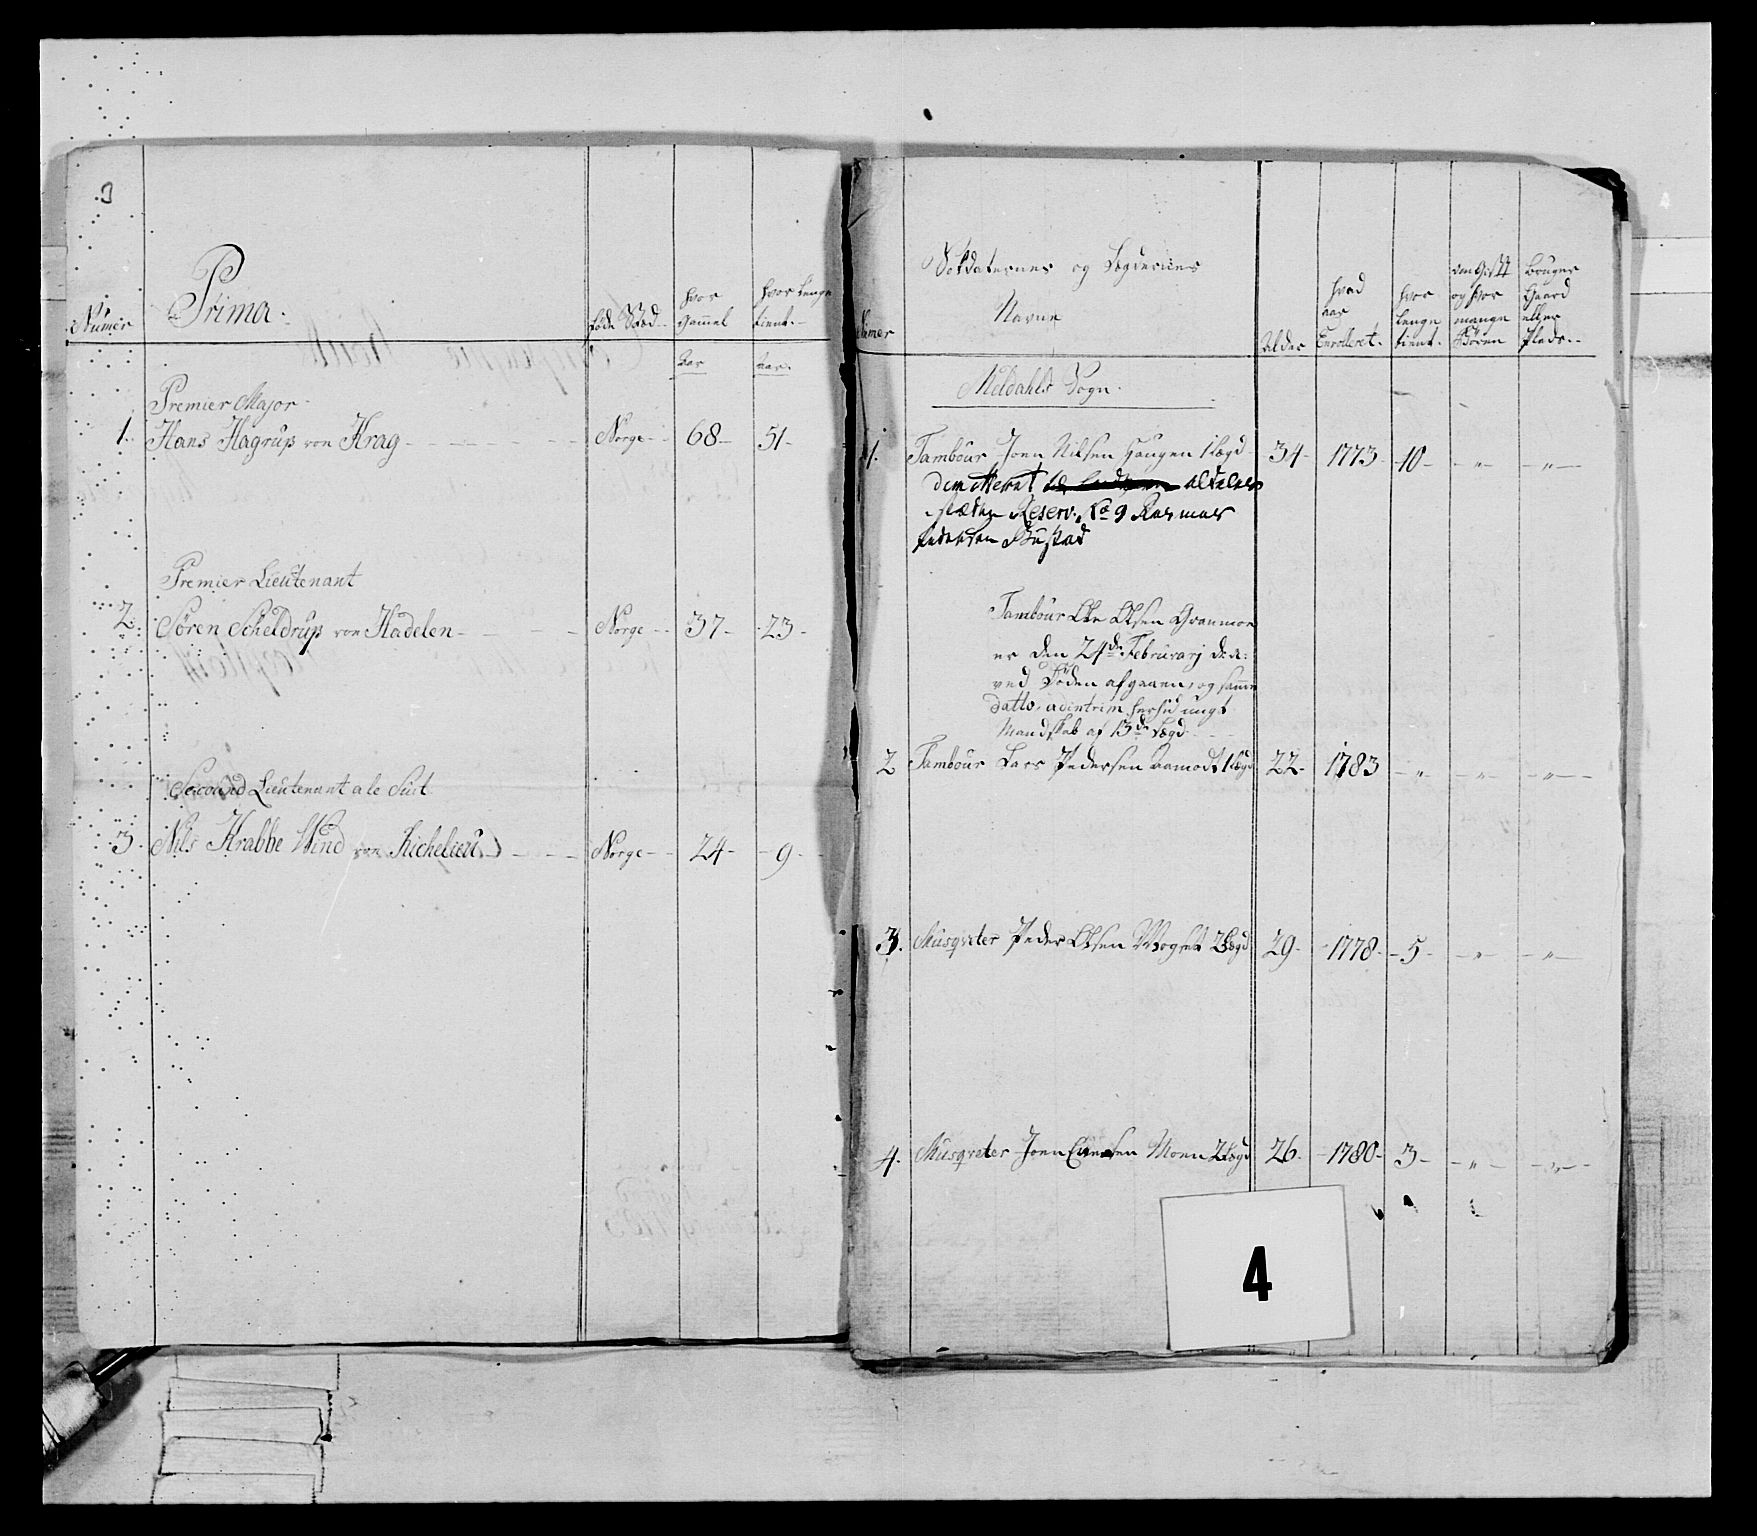 Numer
Prima.
føde Stæd
hvor
Gammel
hvor lenge
tient.
Aar
Aar.
Premier Major
1. Hans Hagrup von Krag - Norge - 68 - 51 -
Premier Lieutenant
2. Søren Scheldrup von Hadelen - Norge - 37 - 23 -
Second Lieutenant ale Suit
3. Nils Krabbe Wind von Richelieu - Norge - 24 - 9 -
Numer
Soldaternes og Lægdernes
Navne
Alder
hvad
aar
Enrolleret.
hvor
lenge
tient.
om Gift
og hvor
mange
Børen
bruger
Gaard
eller
Plads.
Meldahls Sogn.
1. Tambour Joen Nilsen Haugen 1 Lægd 34 - 1773 - 10 - " - "
demitteret
Reserv. No 9 Rasmus
Pedersen
Tambour Ole Olsen Granmoe
er den 24de Februarj d: a:
ved Døden afgaaen, og samme
datto, adintrim
Mandskab af 13de Lægd
2 Tambour Lars Pedersen Aamodt 1 Lægd 22 - 1783 - " - " - "
3. Musqveter Peder Olsen Wogset 2 Lægd 29 - 1778 - 5 - " - "
4. Musqveter Joen Moen 2 Lægd 26 - 1780 - 3 - " - "
4